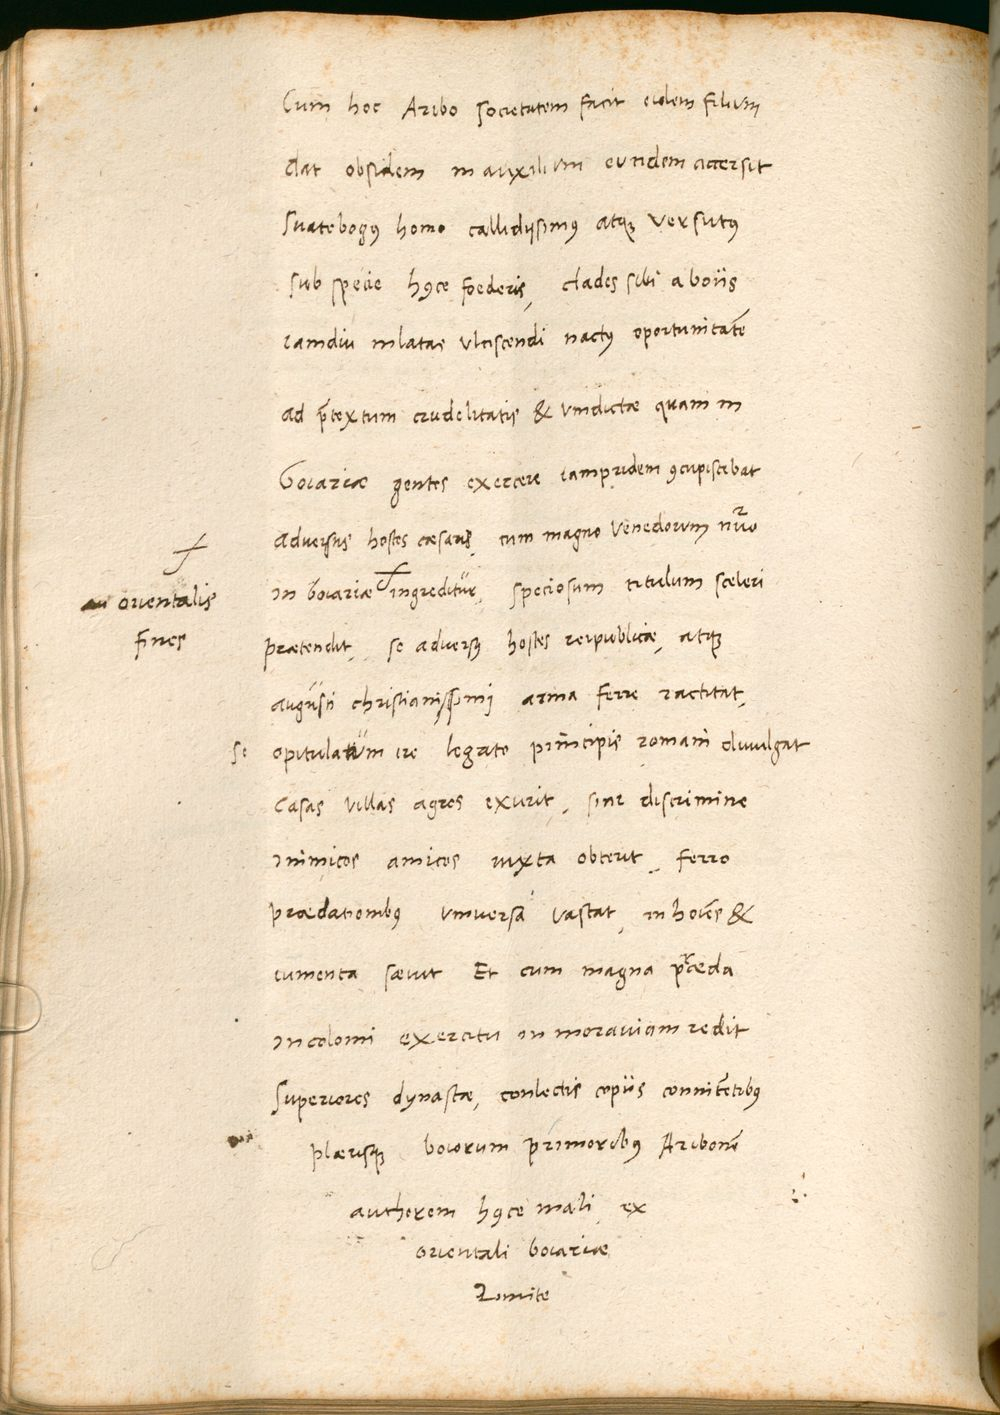 Cum hoc Aribo societatem facit eidem filium
dat obsidem in auxilium eundem accersit
Suatebogꝰ homo callidissimꝰ atqꝫ versutꝰ
sub specie hꝰce foederis, clades sibi a boiis
iamdiu inlatas vlciscendi nactꝰ oportunitatē
ad p̄textum crudelitatis & vindictae quam in
Boiariae gentes exercere iampridem ꝯcupiscebat
adversus hostes caesaris, cum magno Venedorum nūo
in boiariae ingreditur, speciosum titulum sceleri
au orientalis
fines
praetendit, se adversꝰ hostes reipublicae, atqꝫ
augusti christianissimi arma ferre iactitat,
se opitulatum ire legato principis romani divulgat
Casas villas agros exurit, sine discrimine
inimicos amicos iuxta obterit, ferro
praedationibꝰ vniversa vastat, in hoies &
iumenta saevit Et cum magna praeda
incolomi exercitu in moraviam redit
Superiores dynastae, conlectis copiis connitētibꝰ
plaerisqꝫ boiorum primoribꝰ Aribonē
authorem hꝰce mali, ex
orientali boiariae
Limite